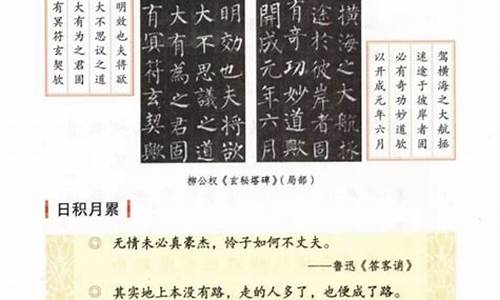 驾横海之大航拯
迷途于彼岸者固
必有奇功妙道欤
以开成元年六月
橫海之大航拯
途於彼岸者固
有奇功妙道歟
開成元年六月
明効也夫將欲
大不思議之道
大有為之君固
有冥符玄契歟
明效也夫将欲
大不思议之道
大有为之君固
有冥符玄契欤
柳公权《玄秘塔碑》(局部)
日积月累
◎ 无情未必真豪杰，怜子如何不丈夫。
——鲁迅《答客诮》
◎ 其实地上本没有路，走的人多了，也便成了路。